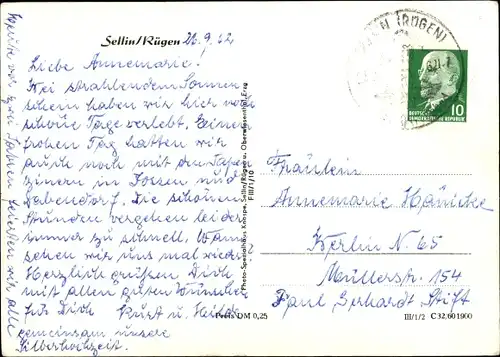 Sellin/Rügen 26.9.62
Liebe Annemarie.
Bei strahlendem Sonnen
schein haben wir hier noch
schöne Tage verlebt. Einen
frohen Tag hatten wir
auch noch mit den
in und
Die schönen
Stunden vergehen leider
immer zu schnell. Wann
sehen wir uns mal wieder
Herzlich grüßen Dich
mit allen guten Wünschen
für Dich Kurt u.
gemeinsam unsere
Silberhochzeit.
Heute vor 
wir alle
Photo-Spezialhaus Knospe, Sellin/Rügen u. Oberwiesenthal, Erzg
F III/1/10
DM 0,25
(RÜGEN)
10
DEUTSCHE
DEMOKRATISCHE REPUBLIK
Fräulein
Annemarie Hänicke
Berlin N. 65
Müllerstr. 154
Paul Gerhardt Stift
III/1/2 C 32/60 1900